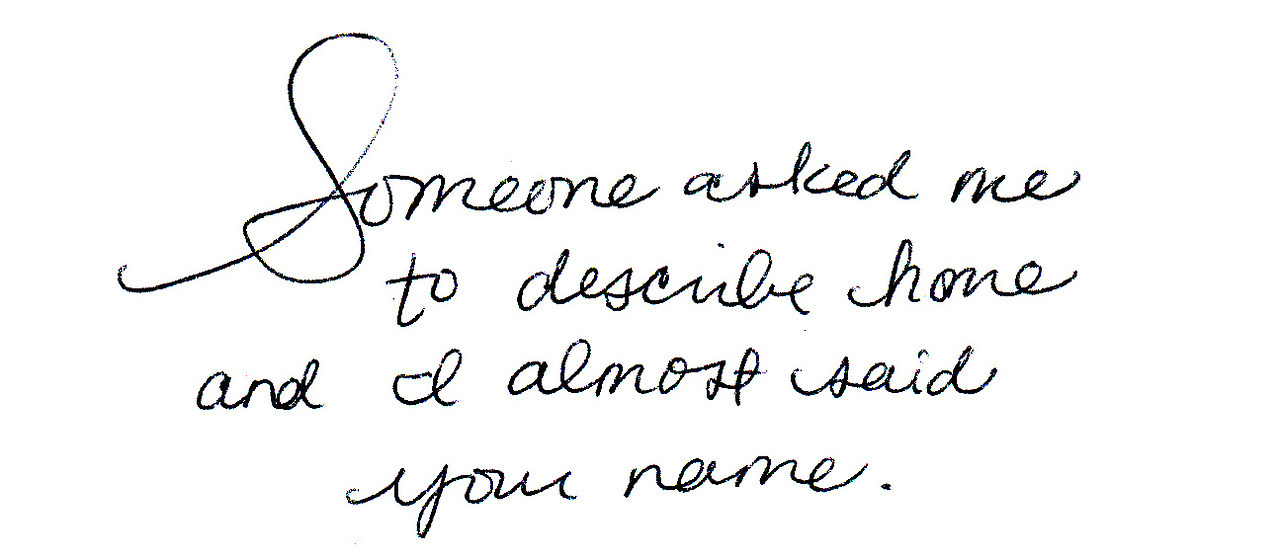 Someone asked me
to describe home
and I almost said
your name.